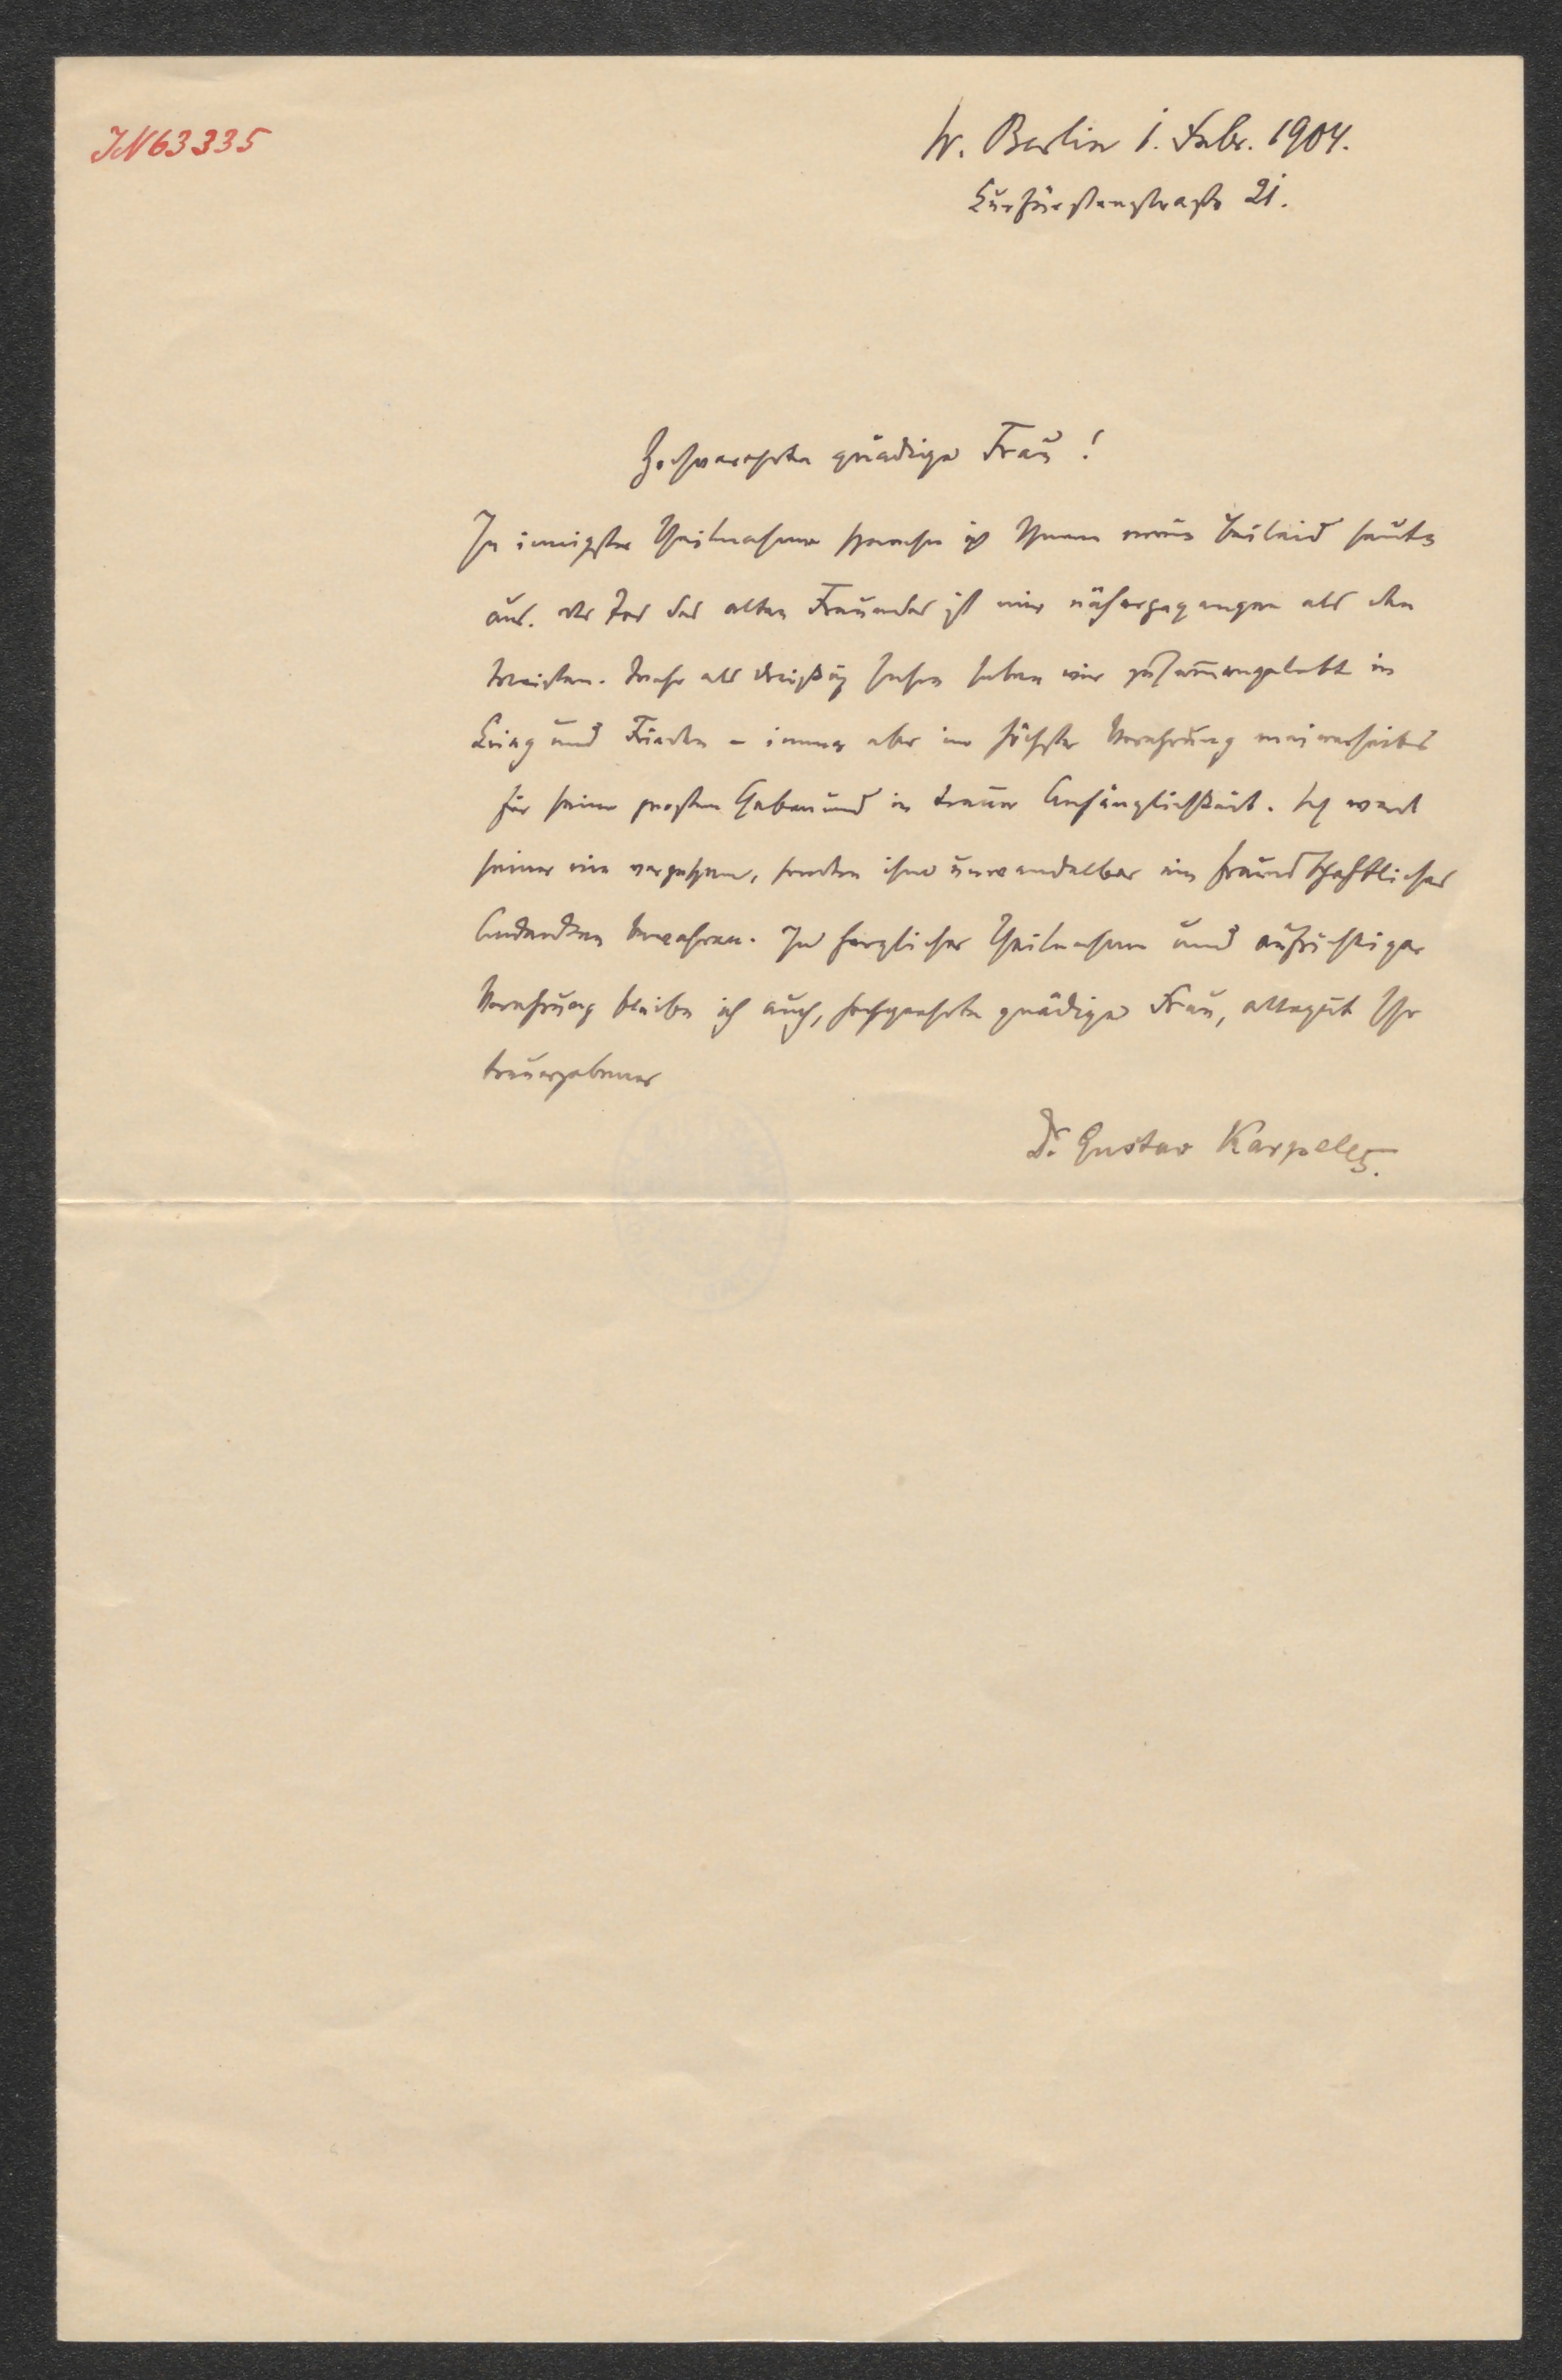 IN 63335
W. Berlin 1. Febr. 1904.
Kurfürstenstraße 21.
Hochverehrte gnädige Frau!
In innigster Theilnahme spreche ich Ihnen mein Beileid heute
aus. Der Tod des alten Freundes ist mir näher gegangen als den
Meisten. Mehr als dreißig Jahre haben wir zusammengelebt in
Krieg und Frieden – immer aber in höchster Verehrung meinerseits
für seine großen Gaben und in treuer Anhänglichkeit. Ich werde
seiner nie vergessen, sondern ihm unwandelbar ein freundschaftliches
Andenken bewahren. In herzlicher Theilnahme und aufrichtiger
Verehrung bleibe ich auch, hochgeehrte gnädige Frau, allezeit Ihr
treuergebener
Dr. Gustav Karpeles.